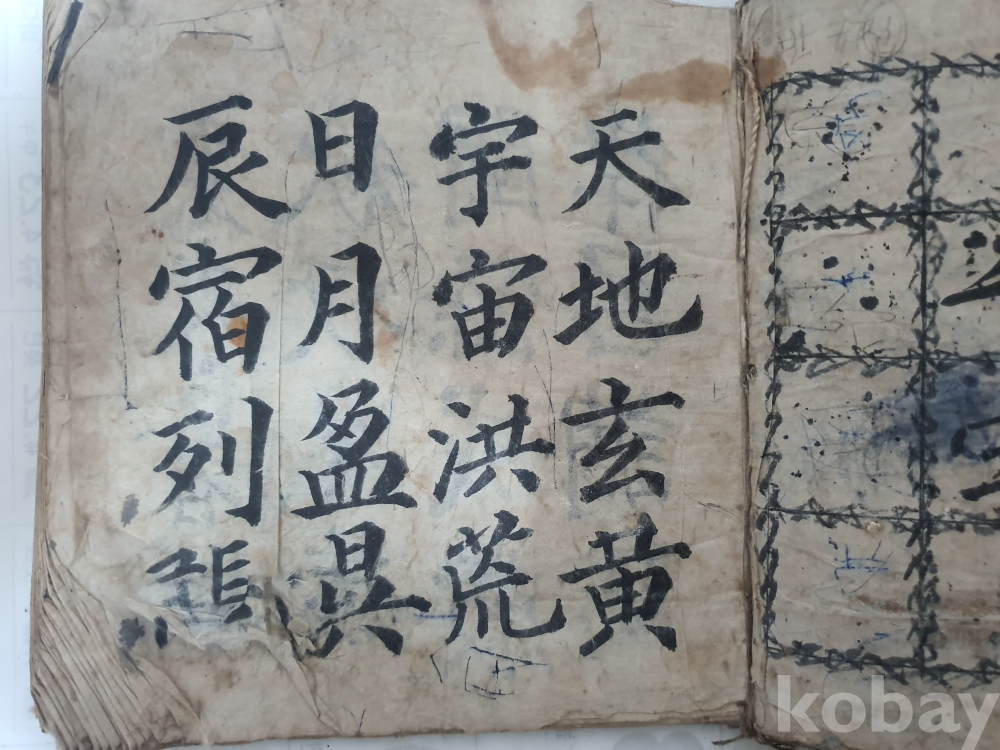 天地玄黃
宇宙洪荒
日月盈昃
辰宿列張
kobay